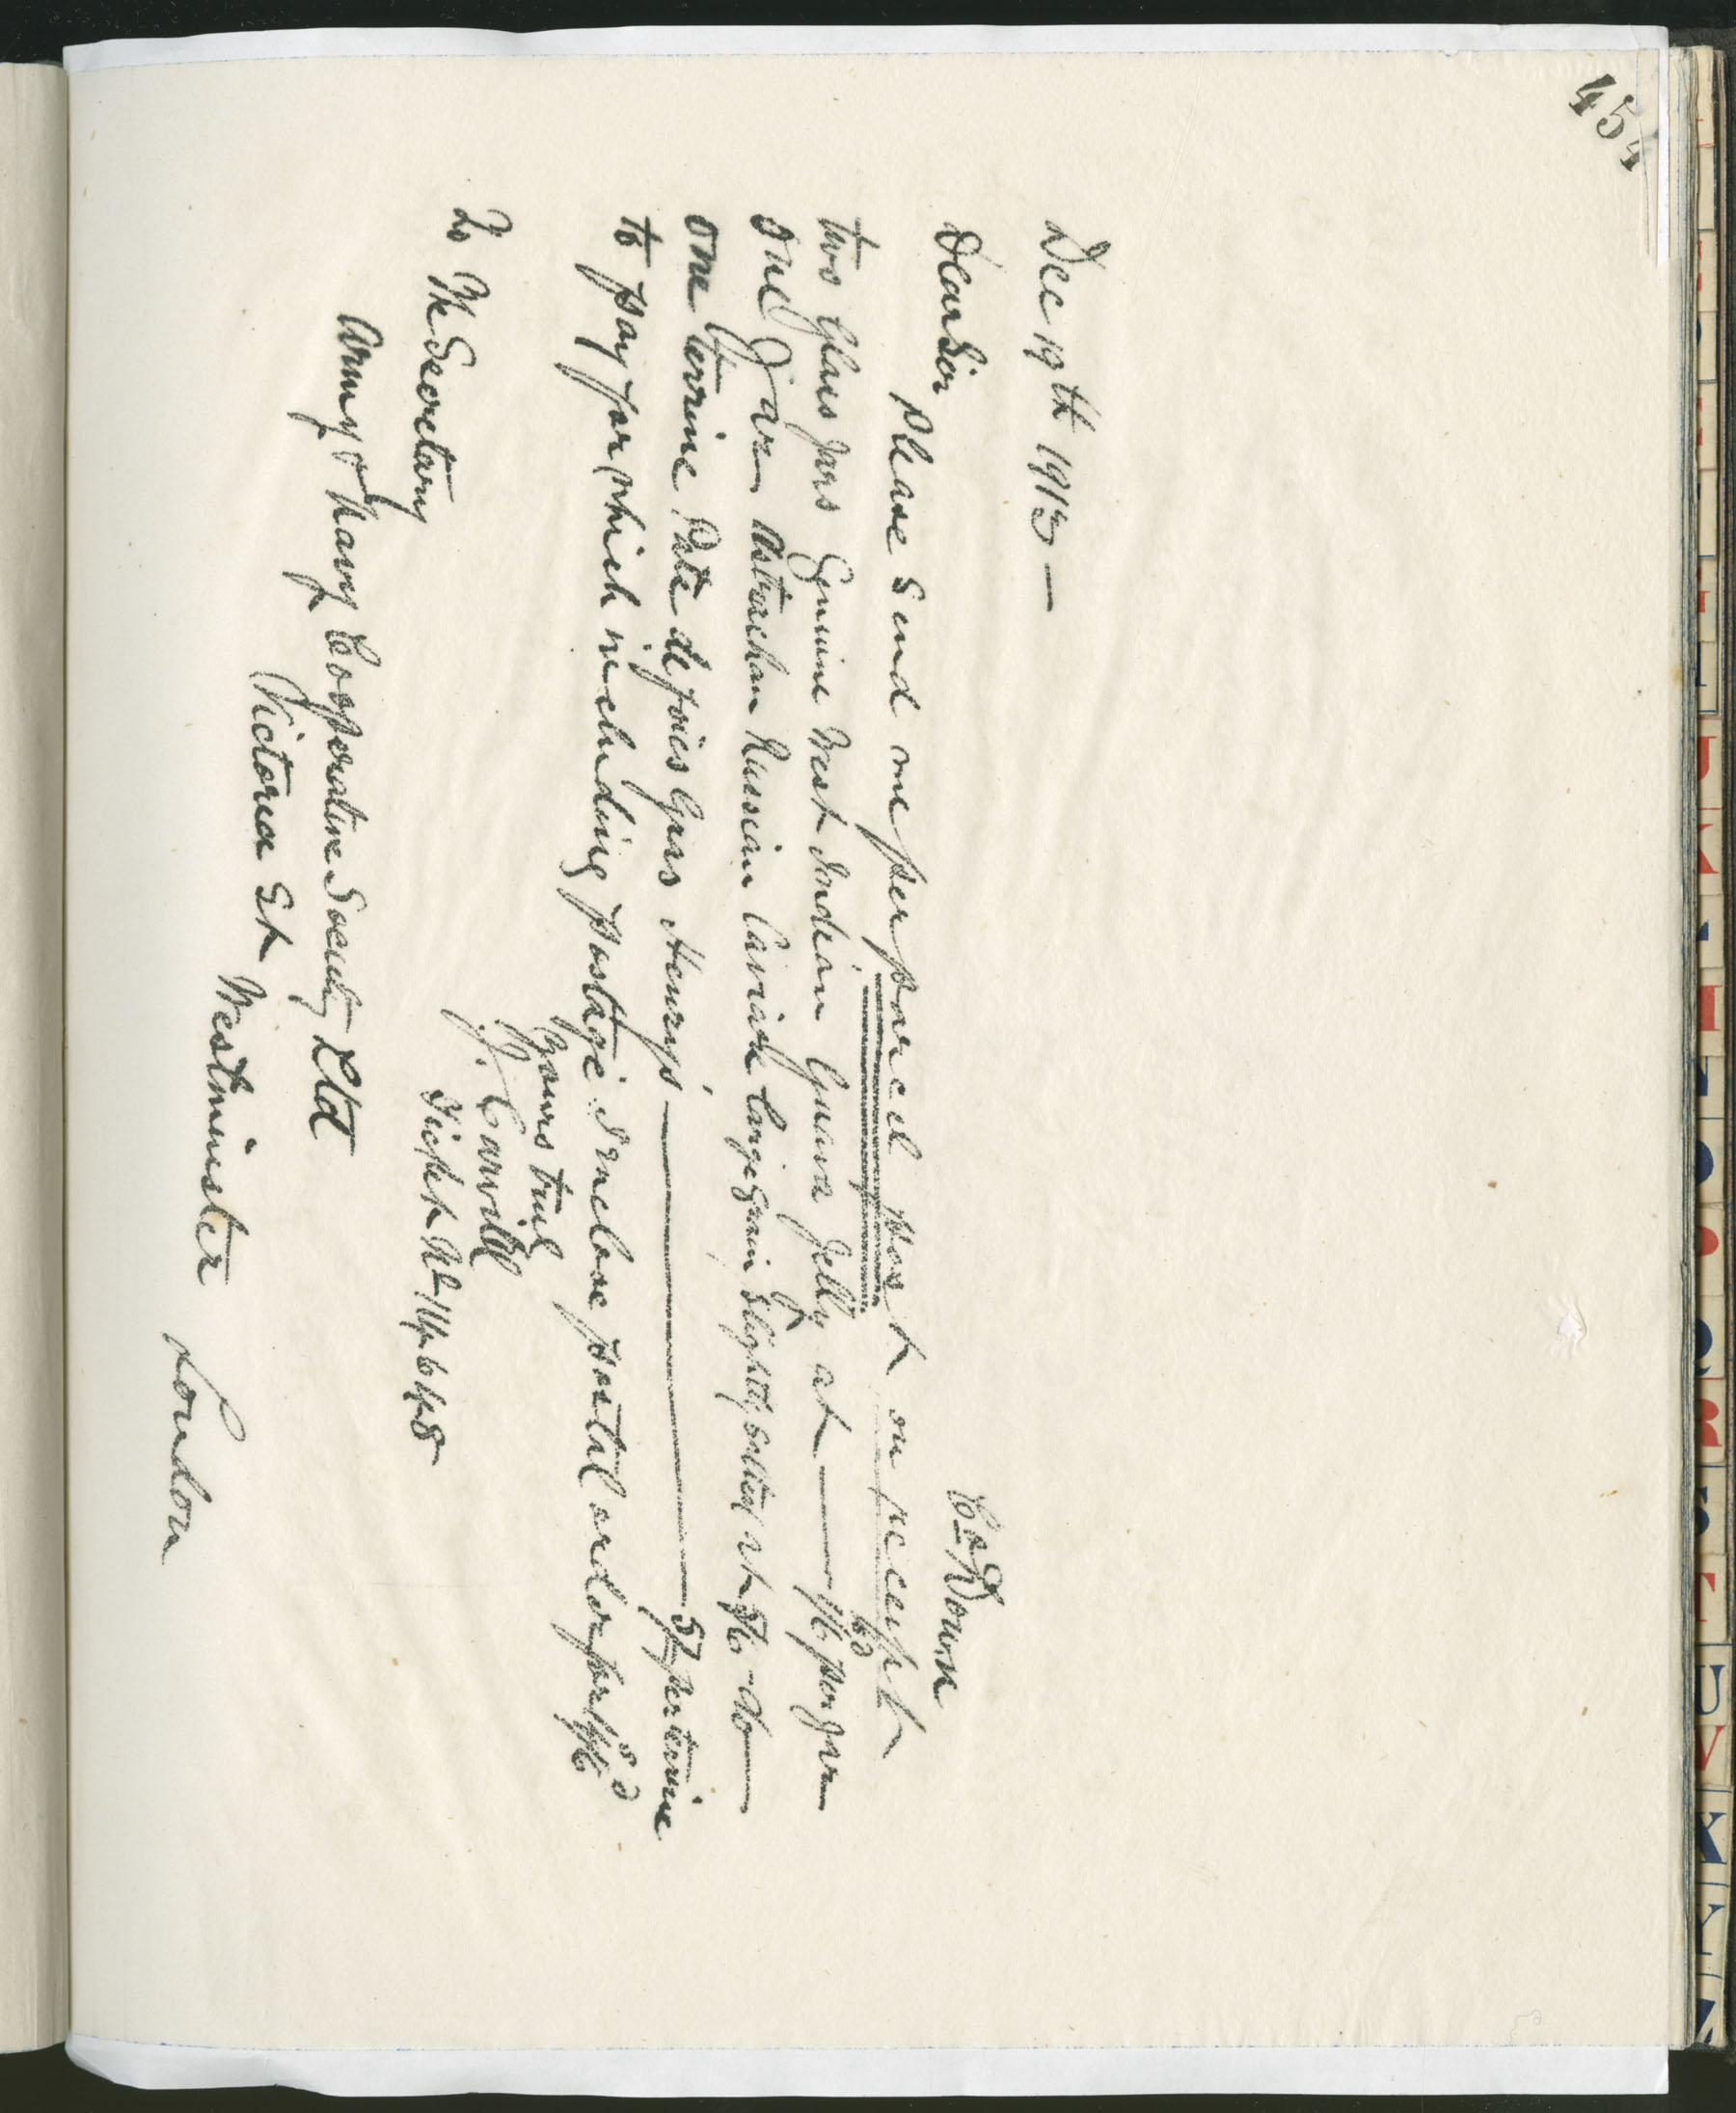 454
Dec 19th 1913 —
Co Down
Dear Sir
Please send me per parcel post on receipt
two Glass Jars Genuine West Indian Guava Jelly at — per jar
one Jar Astrachan Russian Caviare large grain slightly salted at — do —
one terrine Pate de foies Gras Henrys — per terrine
to pay for which including postage I enclose postal order for
Yours truly
J. Carvill
Ticket No
To The Secretary
Army & Navy Cooperative Society Ltd
Victoria St
Westminster
London